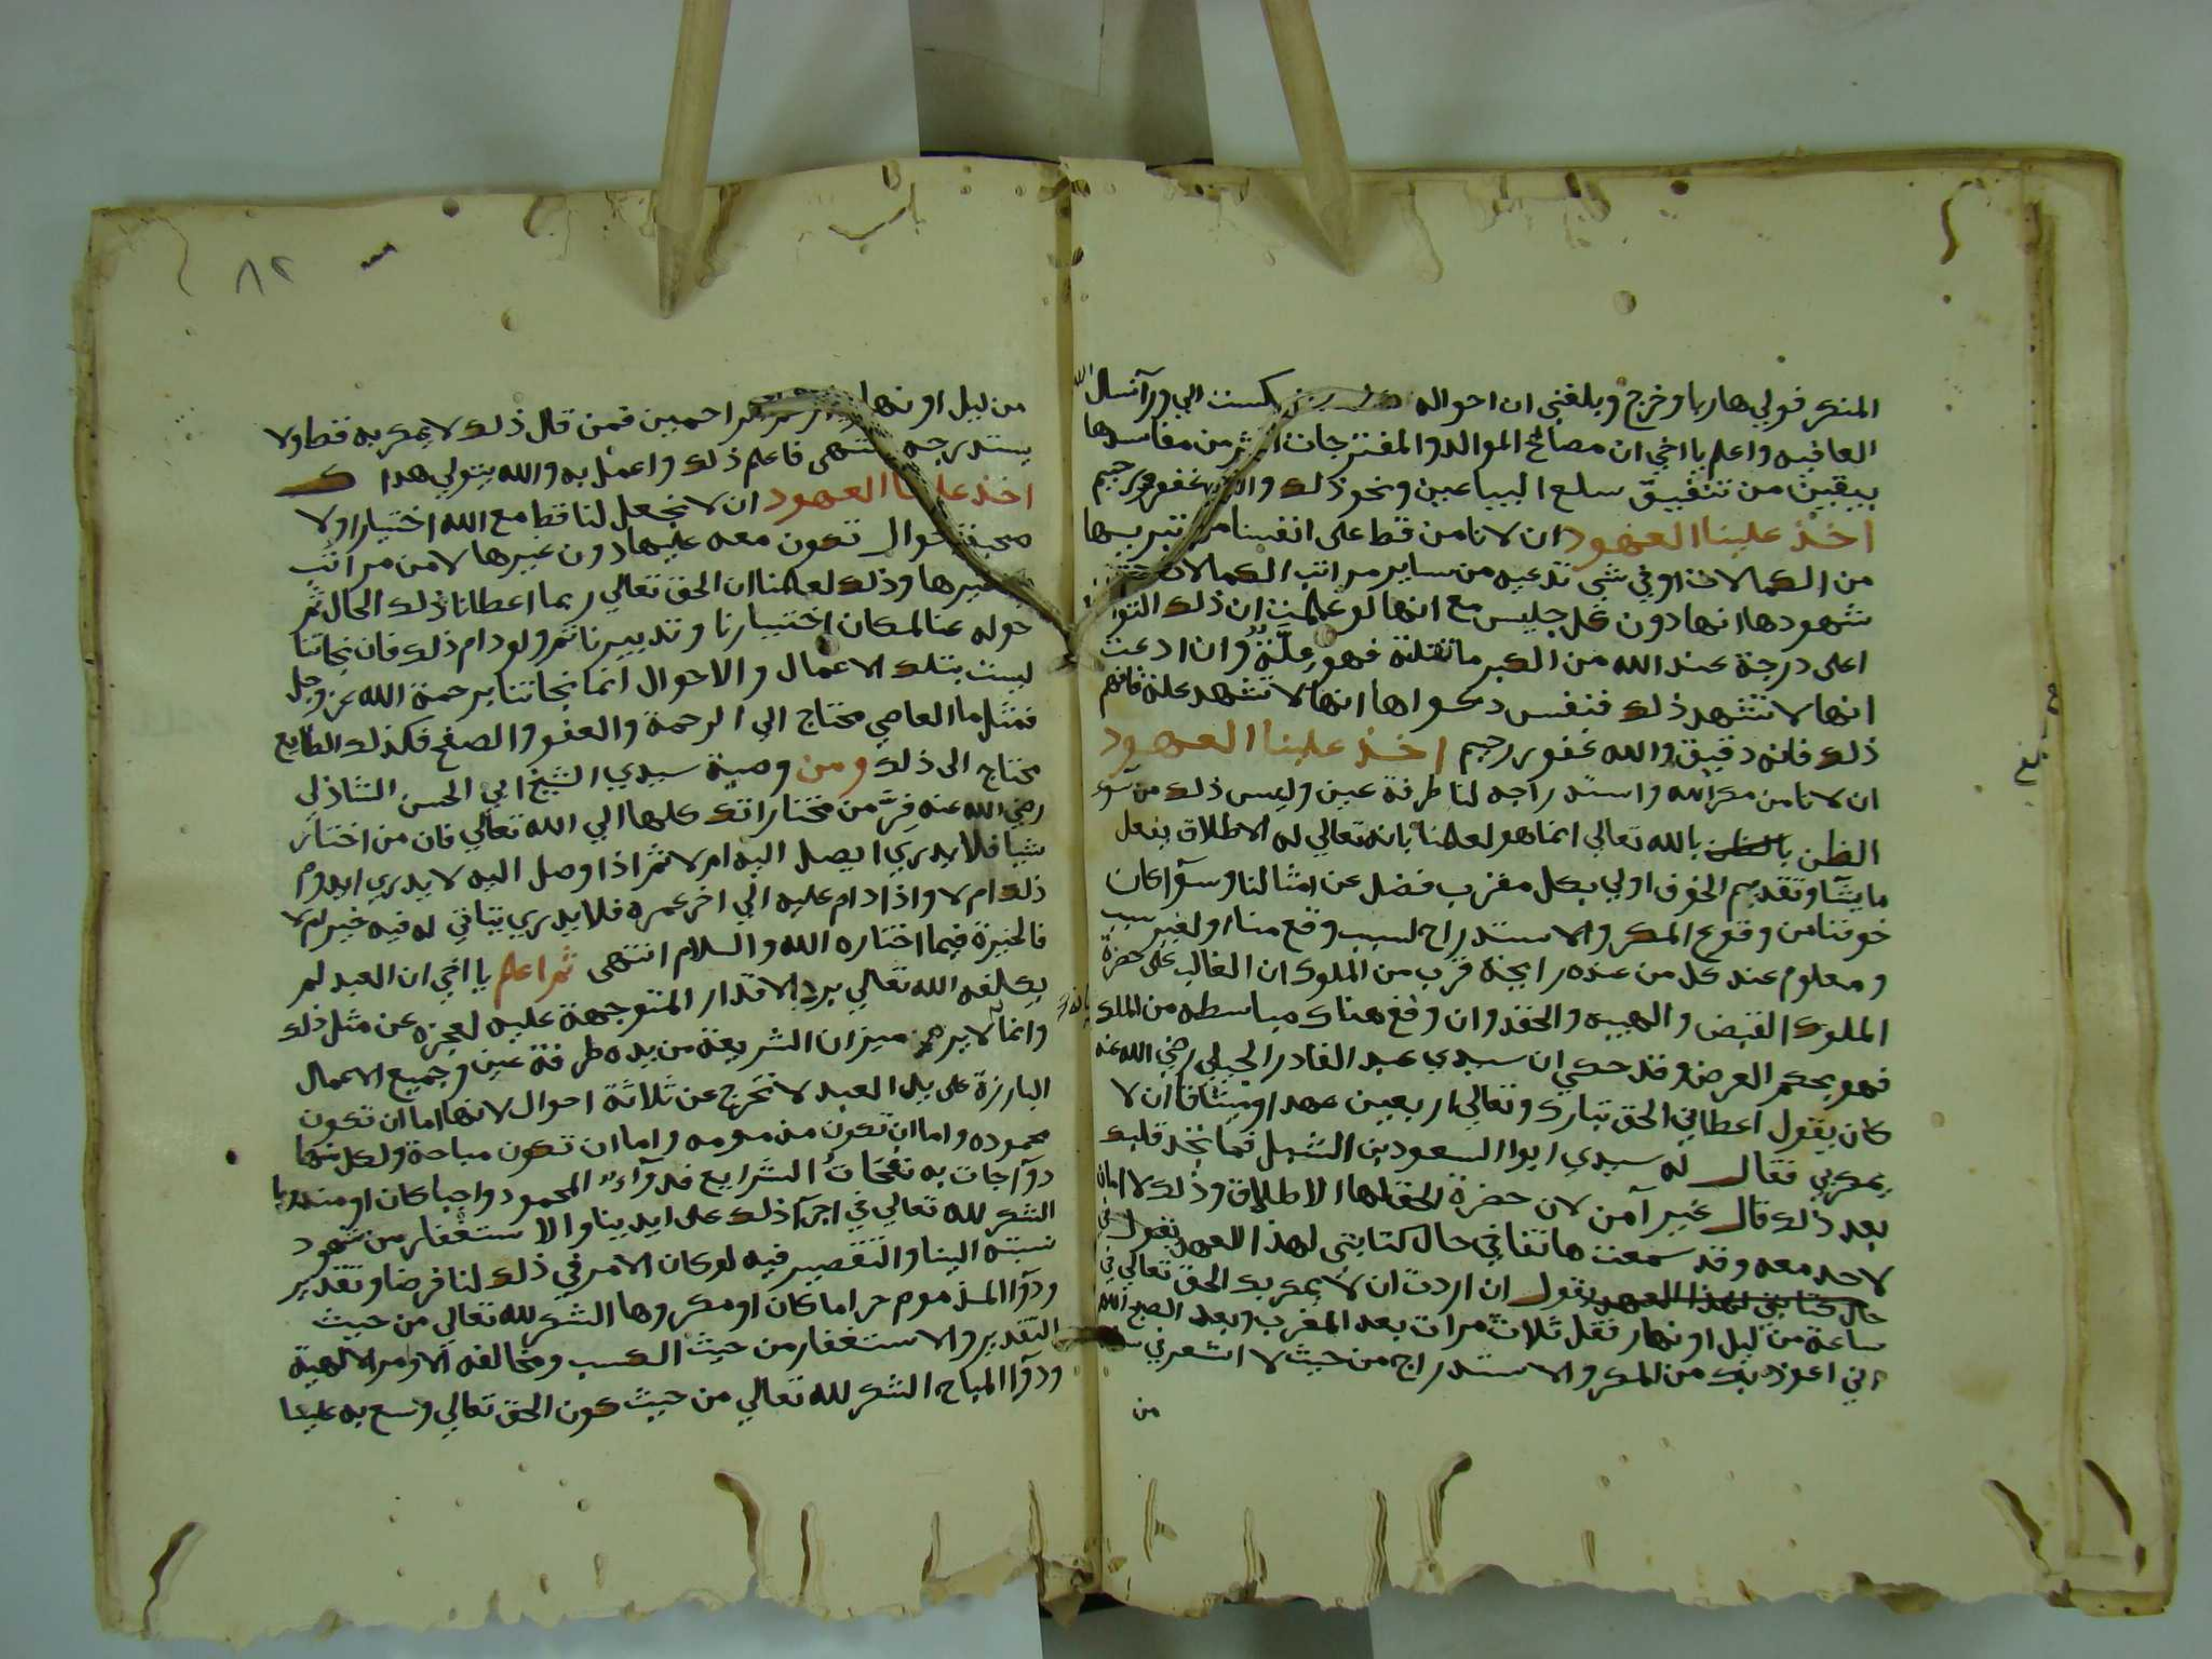 المنكر فولي هاربا وخرج وبلغني ان احواله الي ورآ نسال الله
العافيه واعلم يا اخي ان مصالح الموالد والمفترجات اكثر من مفاسدها
بيقين من تنفيق سلع البياعين ونحو ذلك والله غفور رحيم
اخذ علينا العهود ان لا نامن قط على انفسنا من تبريها
من الكمالات او في شي تدعيه من ساير مراتب الكمالات حتى
شهودها انها دون كل جليس مع انها لو علمت ان ذلك التواضع
اعلى درجة عند الله من الكبر ما نقلته فهو علة وان ادعت
انها لا تشهد ذلك فنفس دعواها انها لا تشهد علة فافهم
ذلك فانه دقيق والله غفور رحيم اخذ علينا العهود
ان لا نامن مكر الله واستدراجه لنا طرفة عين وليس ذلك من سوء
الظن بالله تعالي انما هو لعلمنا بانه تعالي له الاطلاق يفعل
ما يشآ وتقديم الخوف اولي بكل مقرب فضل عن امثالنا وسوآ كان
خوفنا من وقوع المكر والاستدراج لسبب وقع منا او لغير سبب
ومعلوم عند كل من عنده رايحة قرب من الملوك ان الغالب على حضرة
الملوك القبض والهيبه والحقد وان وقع هناك مباسطه من الملك
فهو بحكم العرض وقد حكي ان سيدي عبد القادر الجيلي رضي الله عنه
كان يقول اعطاني الحق تبارك وتعالي اربعين عهدا وميثاقا ان لا
يمكر بي فقال له سيدي ابوا السعود بن الشبل فما نجد قلبك
بعد ذلك قال غير آمن لان حضرة الحق لها الاطلاق وذلك لا امان
لاحد معه وقد سمعت هاتفا في حال كتابتي لهذا العهد يقول في
حال كتابتي لهذا العهد يقول ان اردت ان لا يمكر بك الحق تعالي في
ساعة من ليل او نهار فقل ثلاث مرات بعد المغرب وبعد الصبح اللهم
اني اعوذ بك من المكر والاستدراج من حيث لا اشعر في
من
٨٢
من ليل او نهار يا ارحم الراحمين فمن قال ذلك لا يمكر به قط ولا
يستدرجه انتهى فاعلم ذلك واعمل به والله يتولي هداك
اخذ علينا العهود ان لا نجعل لنا قط مع الله اختيارا ولا
محبة لحوال نكون معه عليها دون غيرها لا من مراتب
غيرها وذلك لعلمنا ان الحق تعالي ربما اعطانا ذلك الحال ثم
حوله عنا لمكان اختيارنا وتدبيرنا ثم ولو دام ذلك فان نجاتنا
ليست بتلك الاعمال والاحوال انما نجاتنا برحمة الله عز وجل
فمثل ما العاصي محتاج الي الرحمة والعفو والصفح فكذلك الطايع
محتاج الى ذلك ومن وصية سيدي الشيخ ابي الحسن الشاذلي
رضي الله عنه فر من مختاراتك كلها الي الله تعالي فان من اختار
شيا فلا يدري ايصل اليه ام لا ثم اذا وصل اليه لا يدري ايدوم
ذلك ام لا واذا دام عليه الي اخر عمره فلا يدري له فيه خير ام لا
فالخيرة فيما اختاره الله والسلام انتهى ثم اعلم يا اخي ان العبد لم
يكلفه الله تعالي برد الاقدار المتوجهة عليه لعجزه عن مثل ذلك
وانما لا يرم ميزان الشريعة من يده طرفة عين وجميع الاعمال
البارزة على يد العبد لا تخرج عن ثلاثة احوال لانها اما ان تكون
محموده واما ان تكون مذمومه واما ان تكون مباحة ولكل منها
دوآ جات به نفحات الشرايع فدوآء المحمود واجبا كان او مندوبا
الشكر لله تعالي في اجرآ ذلك على ايدينا والاستغفار من شهود
نسبته الينا والتقصير فيه لو كان الامر في ذلك لنا فرضا وتقدير
ودوآ المذموم حراما كان او مكروها الشكر لله تعالي من حيث
التقدير والاستغفار من حيث الكسب ومخالفة الاوامر الالهية
ودوآ المباح الشكر لله تعالي من حيث كون الحق تعالي وسع به علينا